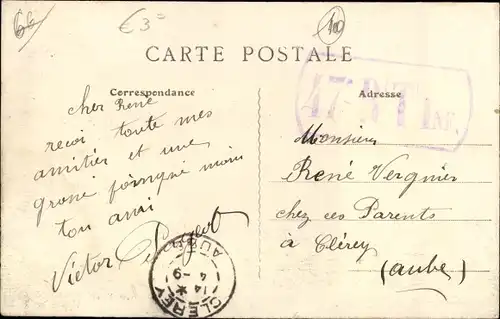 66
€3=
100
CARTE POSTALE
Correspondance
cher René
recoi toute mes
amitiér et une
grosse poingné main
ton ami
Victor
Adresse
Monsieur
René Vergnier
chez ces Parents
à Clérey
(aube)
47
INF.
CLEREY
14 *
4 -9
AUBE